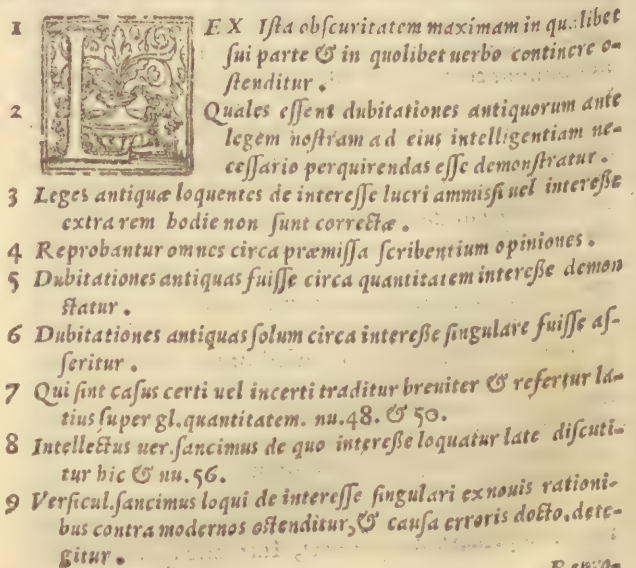 1 LEX Iſta obſcuritatem maximam in qu.libet
ſui parte & in quolibet uerbo continere o-
ſtenditur.
2 Quales eſſent dubitationes antiquorum ante
legem noſtram ad eius intelligentiam ne-
ceſſario perquirendas eſſe demonſtratur.
3 Leges antiquæ loquentes de intereſſe lucri ammiſſi uel intereße
extra rem hodie non ſunt correctæ.
4 Reprobantur omnes circa præmiſſa ſcribentium opiniones.
5 Dubitationes antiquas fuiſſe circa quantitatem intereße demon
ſtatur.
6 Dubitationes antiquas ſolum circa intereße ſingulare fuiſſe aſ-
ſeritur.
7 Qui ſint caſus certi uel incerti traditur breuiter & refertur la-
tius ſuper gl.quantitatem. nu.48. & 50.
8 Intellectus uer.ſancimus de quo intereße loquatur late diſcuti-
tur hic & nu.56.
9 Verſicul.ſancimus loqui de intereſſe ſingulari ex nouis rationi-
bus contra modernos oſtenditur, & cauſa erroris docto.dete-
gitur.